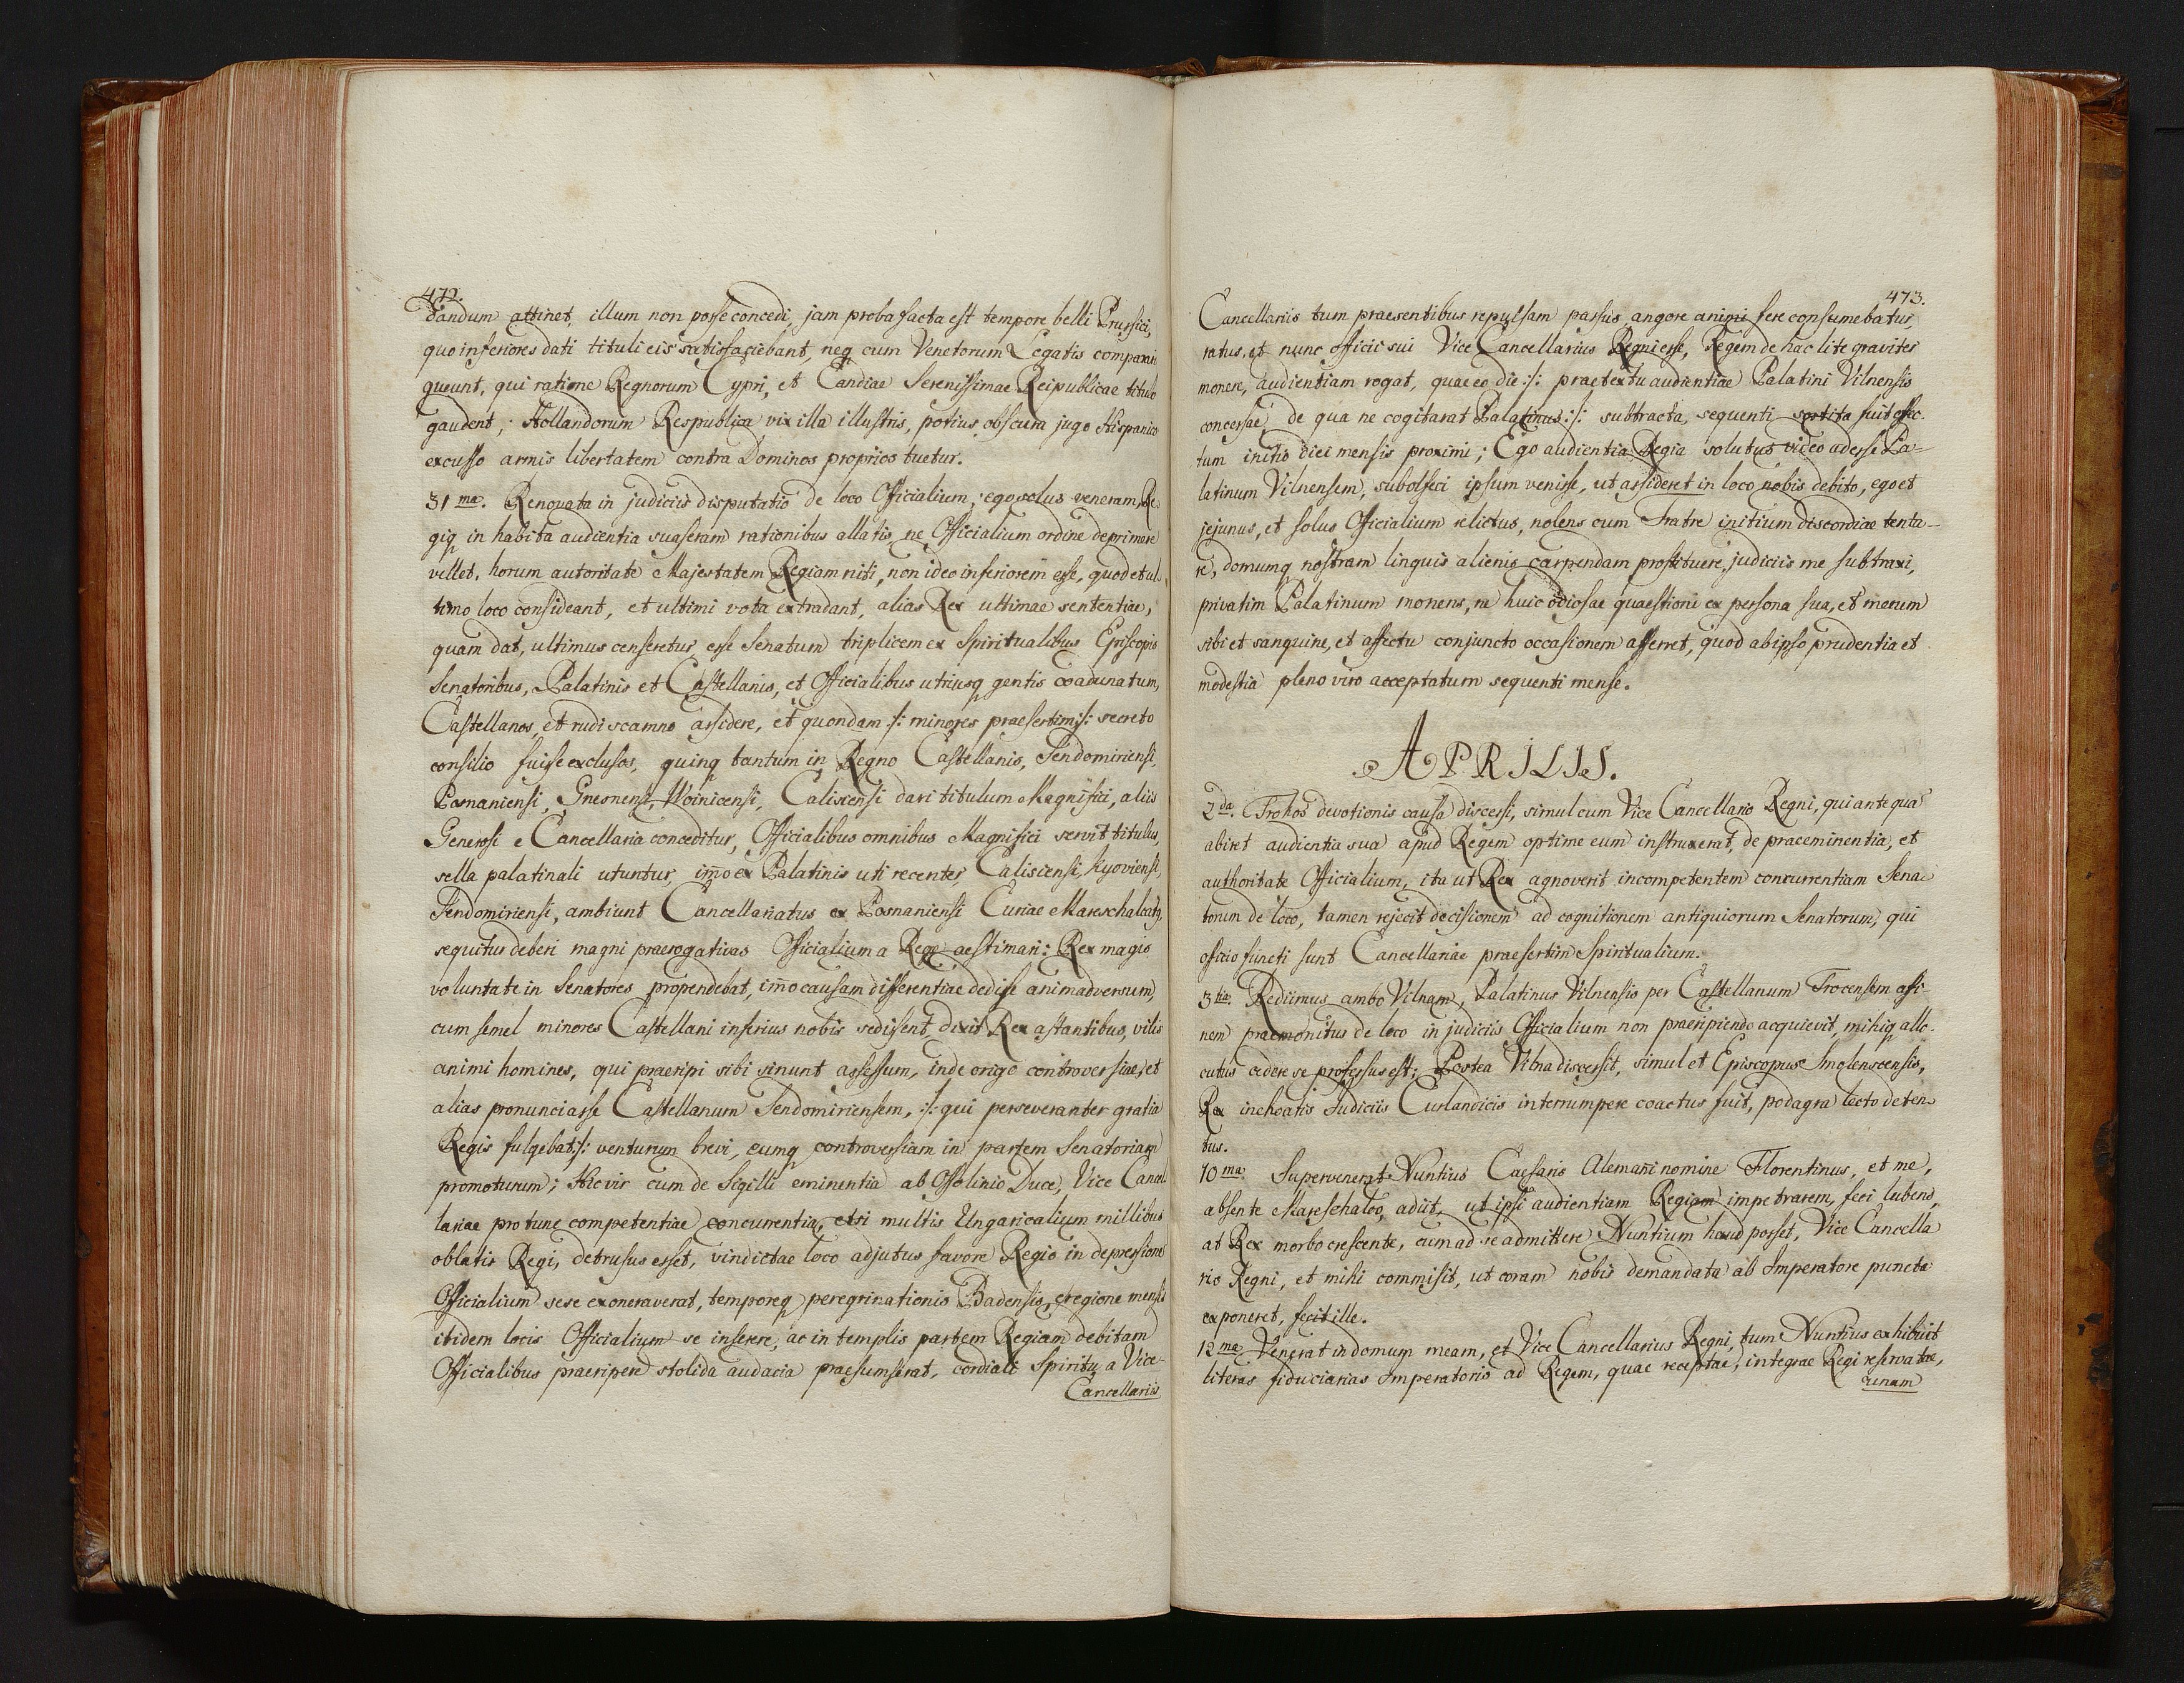 472.
dandum attinet, illum non posse concedi, jam proba facta est tempore belli Prussici,
quo inferiores dati tituli eis satisfaciebant, neq cum Venetorum Legatis comparari
queunt, qui ratione Regnorum Cypri, et Candiae Serenissimae Reipublicae titulo
gaudent, Hollandorum Respublica vix illa illustris, potius obscura jugo Hispanico
excusso armis libertatem contra Dominos proprios tuetur.
31ma. Renovata in judiciis disputatio de loco Officialium, ego solus veneram, Re-
giq in habita audientia suaseram rationibus allatis, ne Officialium ordine deprimere
vellet, horum autoritate Majestatem Regiam niti, non ideo inferiorem esse, quod et ul-
timo loco consideant, et ultimi vota extradant, alias Rex ultimae sententiae,
quam dat, ultimus censeretur, esse Senatum triplicem ex Spiritualibus Episcopis
Senatoribus, Palatinis et Castellanis, et Officialibus utriusq gentis coadunatum,
Castellanos, et rudi scamno assidere, et quondam :/: minores praesertim :/: secreto
consilio fuisse exclusos, quinq tantum in Regno Castellanis, Sendomiriensi,
Posnaniensi, Gnesnensi, Woinicensi, Calisiensi dari titulum Magnifici, aliis
Generosi e Cancellaria conceditur, Officialibus omnibus Magnifici servit titulus,
sella palatinali utuntur, imo ex Palatinis uti recenter, Calisiensi, Kyoviensi,
Sendomiriensi, ambiunt Cancellariatus ex Posnaniensi Curiae Mareschalcatq,
sequitur deberi magni praerogativas Officialium a Rege aestimari: Rex magis
voluntate in Senatores propendebat, imo causam differentiae dedisse animadversum,
cum semel minores Castellani inferius nobis sedissent, dixit Rex astantibus, vilis
animi homines, qui praeripi sibi sinunt assessum, inde origo controversiae, et
alias pronunciasse Castellanum Sendomiriensem, :/: qui perseveranter gratia
Regis fulgebat :/: venturum brevi, eumq controversiam in partem Senatoriam
promoturum; Hic vir cum de Sigilli eminentia ab Ossolinio Duce, Vice Cancel-
lariae pro tunc competentiae concurrentia, etsi multis Ungaricalium millibus
oblatis Regi, detrusus esset, vindictae loco adjutus favore Regio in depressione
Officialium sese exoneraverat, temporeq peregrinationis Badensis, e regione mensis
itidem locis Officialium se inserere, ac in templis partem Regiam debitam
Officialibus praeripere stolida audacia praesumserat, cordiali Spiritu a Vice-
Cancellariis
473.
Cancellariis tum praesentibus repulsam passus angore animi fere consumebatur,
ratus, et nunc officii sui Vice Cancellarius Regni esse, Regem de hac lite graviter
monere, audientiam rogat, quae eo die :/: praetextu audientiae Palatini Vilnensis
concessae de qua ne cogitarat Palatinus :/: subtracta, sequenti sortita fuit effec-
tum initio diei mensis proximi; Ego audientia Regia solutus video adesse Pa-
latinum Vilnensem, subolfeci ipsum venisse, ut assideret in loco nobis debito, ego et
jejunus, et solus Officialium relictus, nolens cum Fratre initium discordiae tenta-
re, domumq nostram linguis alienis carpendam prostituere, judiciis me subtraxi,
privatim Palatinum monens, ne huic odiosae quaestioni ex persona sua, et mecum
sibi et sanguine, et affectu conjuncto occasionem afferret, quod ab ipso prudentia et
modestia pleno viro acceptatum sequenti mense.
APRILIS.
2da. Trokos devotionis causa discessi, simul cum Vice Cancellario Regni, qui ante qua
abiret audientia sua apud Regem optime eum instruxerat, de praeeminentia, et
authoritate Officialium, ita ut Rex agnoverit incompetentem concurrentiam Sena-
torum de loco, tamen rejecit decisionem ad cognitionem antiquiorum Senatorum, qui
officio functi sunt Cancellariae praesertim Spiritualium.
3tia. Rediimus ambo Vilnam, Palatinus Vilnensis per Castellanum Trocensem affi-
nem praemonitus de loco in judiciis Officialium non praeripiendo acquievit, mihiq allo-
cutus cedere se professus est; Postea Vilna discessit, simul et Episcopus Smolenscensis,
Rex inchoatis Judiciis Curlandicis interrumpere coactus fuit, podagra lecto deten-
tus.
10ma. Supervenerat Nuntius Caesaris Alemani nomine Florentinus, et me,
absente Mareschalco, adiit, ut ipsi audientiam Regiam impetrarem, feci lubens,
at Rex morbo crescente, cum ad se admittere Nuntium haud posset, Vice Cancella-
rio Regni, et mihi commisit, ut coram nobis demandata ab Imperatore puncta
exponeret, fecit ille.
12ma. Venerat in domum meam, et Vice Cancellarius Regni, tum Nuntius exhibuit
literas fiduciarias Imperatoris ad Regem, quae receptae, integrae Regi reservatae,
unam